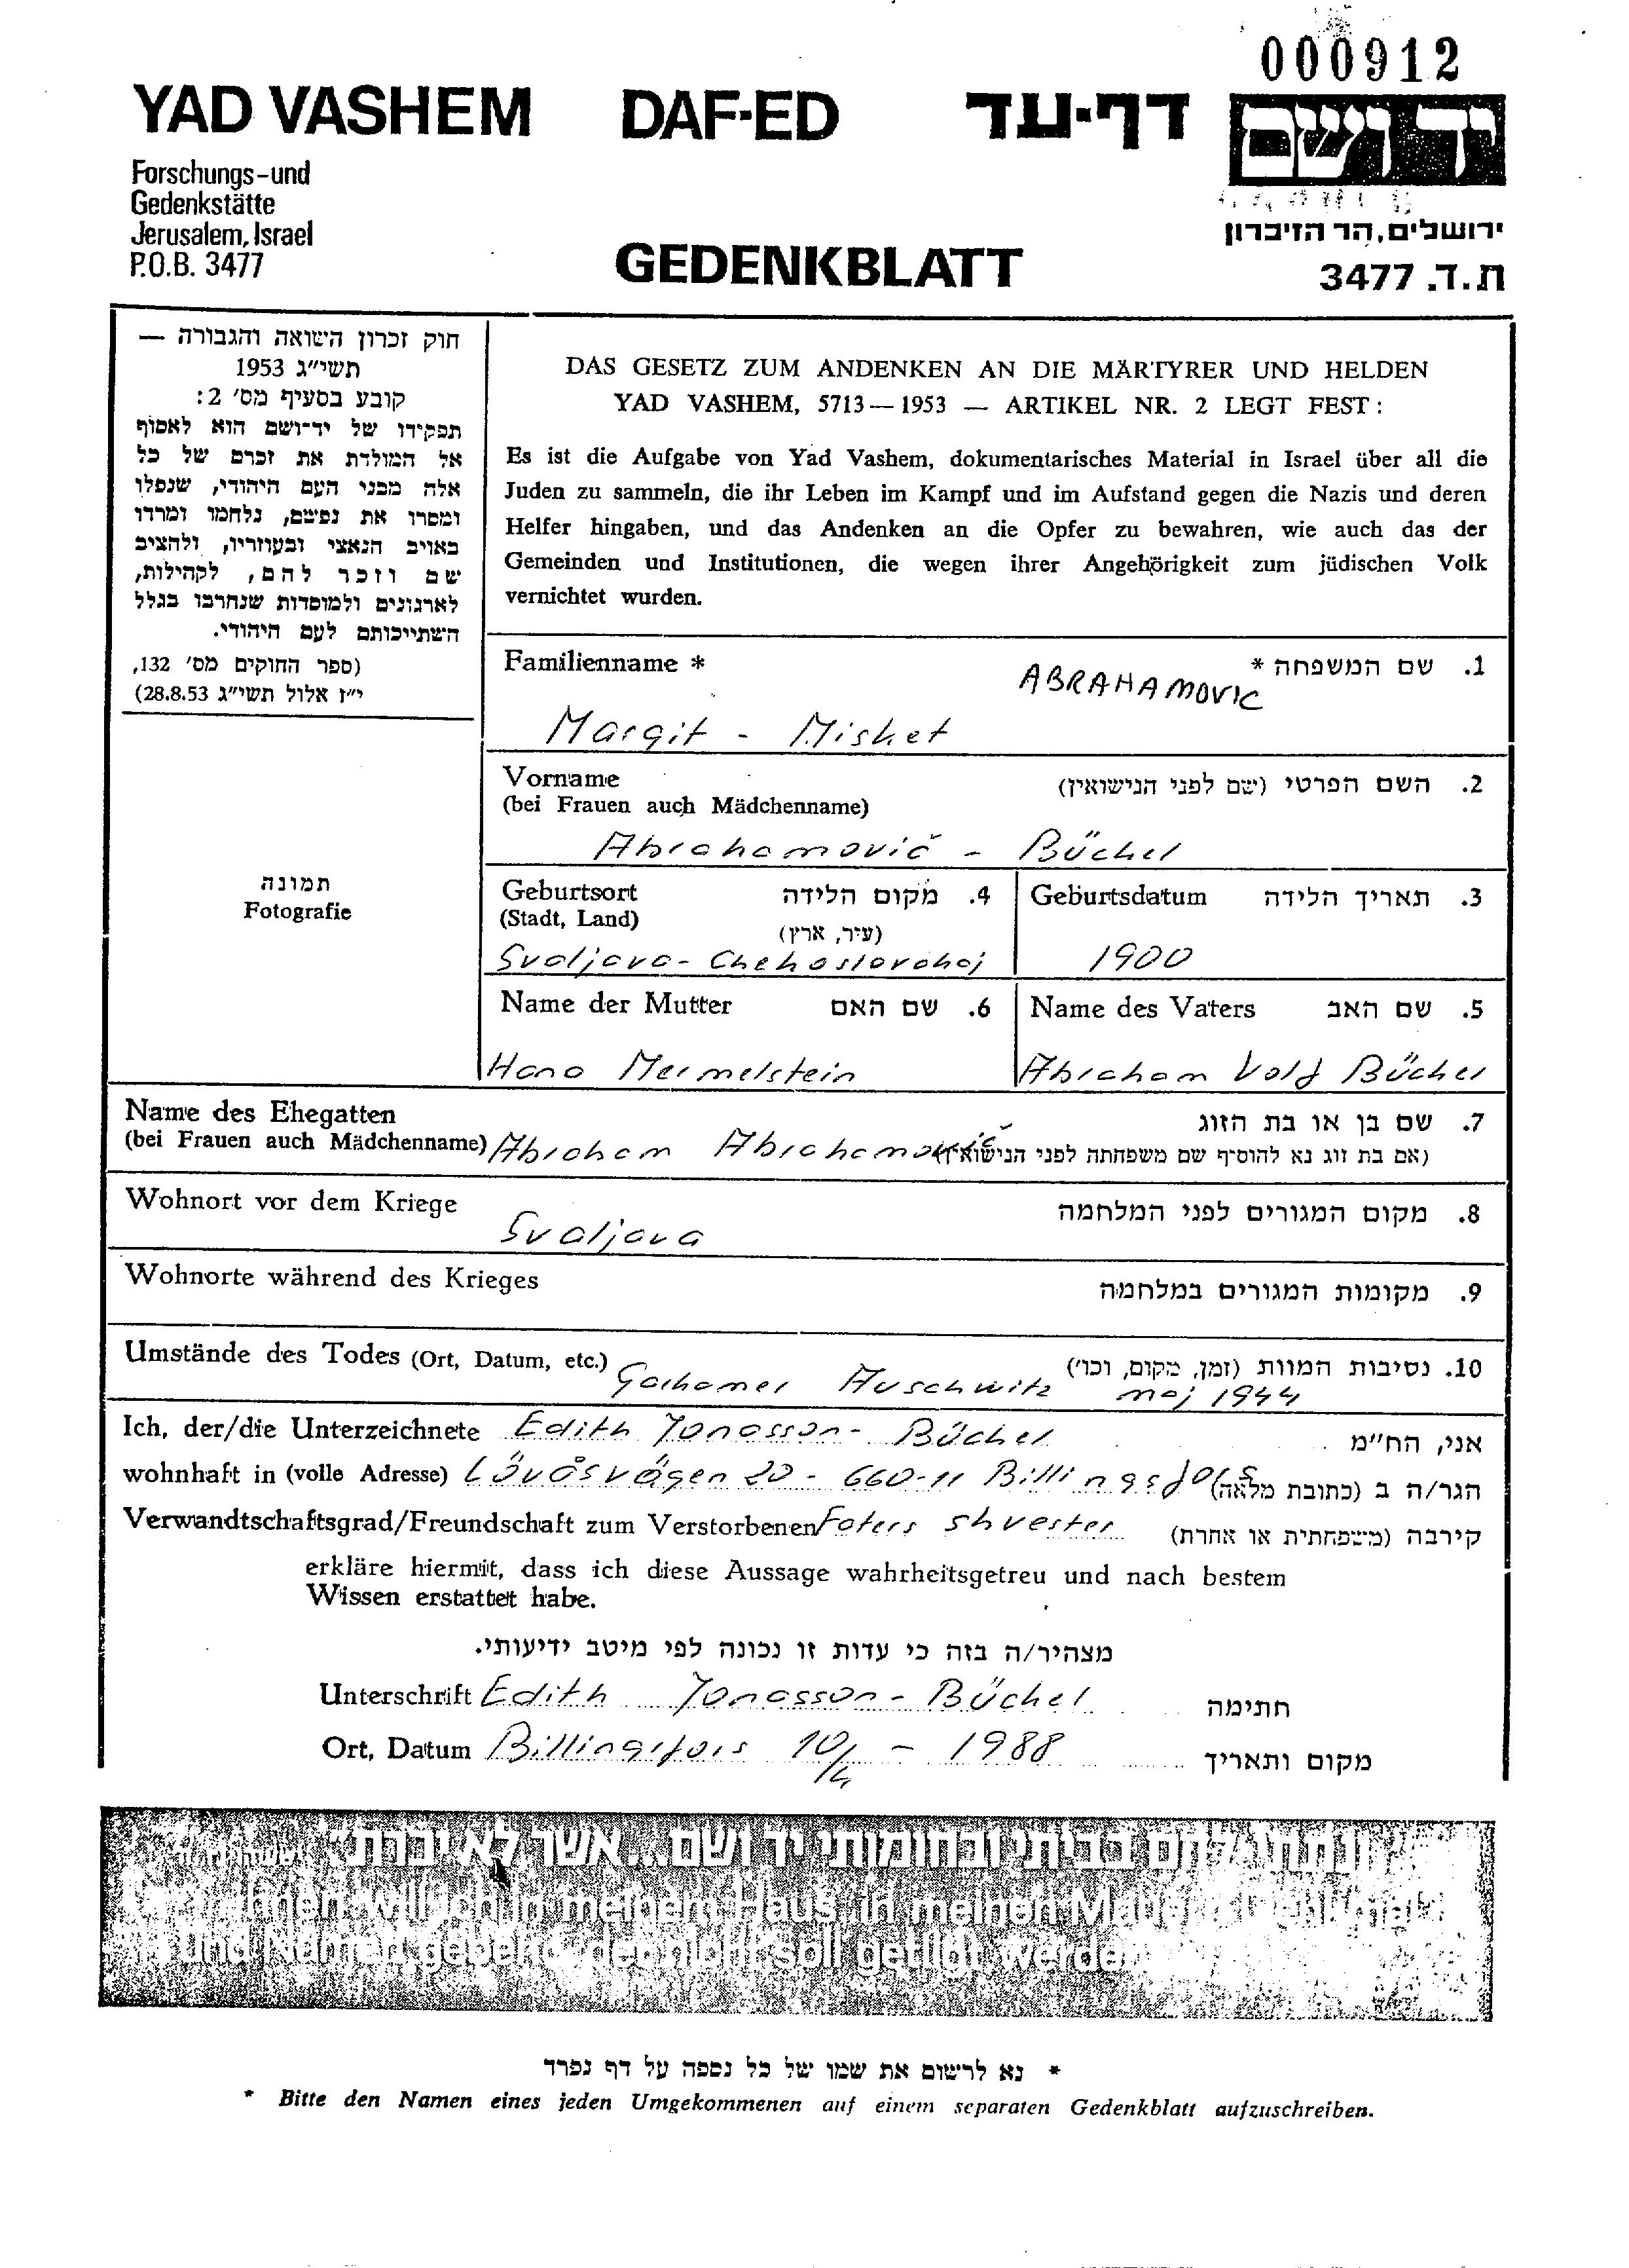 000912
YAD VASHEM DAF-ED דף-עד
יד ושם
Forschungs-und
Gedenkstätte
Jerusalem, Israel
P.O.B. 3477
GEDENKBLATT
ירושלים, הר הזיכרון
ת.ד. 3477
חוק זכרון השואה והגבורה —
תשי״ג 1953
קובע בסעיף מס׳ 2:
תפקידו של יד-ושם הוא לאסוף
אל המולדת את זכרם של כל
אלה מבני העם היהודי, שנפלו
ומסרו את נפשם, נלחמו ומרדו
באויב הנאצי ובעוזריו, ולהציב
שם וזכר להם, לקהילות,
לארגונים ולמוסדות שנחרבו בגלל
השתייכותם לעם היהודי.
(ספר החוקים מס׳ 132,
י״ז אלול תשי״ג 28.8.53)
DAS GESETZ ZUM ANDENKEN AN DIE MÄRTYRER UND HELDEN
YAD VASHEM, 5713—1953 — ARTIKEL NR. 2 LEGT FEST:
Es ist die Aufgabe von Yad Vashem, dokumentarisches Material in Israel über all die
Juden zu sammeln, die ihr Leben im Kampf und im Aufstand gegen die Nazis und deren
Helfer hingaben, und das Andenken an die Opfer zu bewahren, wie auch das der
Gemeinden und Institutionen, die wegen ihrer Angehörigkeit zum jüdischen Volk
vernichtet wurden.
תמונה
Fotografie
Familienname * ABRAHAMOVIC 1. שם המשפחה *
Margit - Misket
Vorname 2. השם הפרטי (שם לפני הנישואין)
(bei Frauen auch Mädchenname)
Abrahamovič - Büchel
Geburtsort 4. מקום הלידה
(Stadt, Land) (עיר, ארץ)
Svaljava- Chekoslovakaj
Geburtsdatum 3. תאריך הלידה
1900
Name der Mutter 6. שם האם
Hana Mermelstein
Name des Vaters 5. שם האב
Abraham Volf Büchel
Name des Ehegatten 7. שם בן או בת הזוג
(bei Frauen auch Mädchenname) Abraham Abrahamovič (אם בת זוג נא להוסיף שם משפחתה לפני הנישואין)
Wohnort vor dem Kriege 8. מקום המגורים לפני המלחמה
Svaljava
Wohnorte während des Krieges 9. מקומות המגורים במלחמה
Umstände des Todes (Ort, Datum, etc.) 10. נסיבות המוות (זמן, מקום, וכו׳)
Gaskamer Auschwitz maj 1944
Ich, der/die Unterzeichnete Edith Jonasson- Büchel אני, הח״מ
wohnhaft in (volle Adresse) Lövåsvägen 20 - 660-11 Billingsfors הגר/ה ב (כתובת מלאה)
Verwandtschaftsgrad/Freundschaft zum Verstorbenen Faters shvester קירבה (משפחתית או אחרת)
erkläre hiermit, dass ich diese Aussage wahrheitsgetreu und nach bestem
Wissen erstattet habe.
מצהיר/ה בזה כי עדות זו נכונה לפי מיטב ידיעותי.
Unterschrift Edith Jonasson - Büchel חתימה
Ort, Datum Billingsfors 10/4 - 1988 מקום ותאריך
ונתתי להם בביתי ובחומותי יד ושם...אשר לא יכרת״
ihnen will ich in meinem Haus, in meinen Mauern Denkmal
und Namen geben, der nicht soll getilgt werden
* נא לרשום את שמו של כל נספה על דף נפרד
* Bitte den Namen eines jeden Umgekommenen auf einem separaten Gedenkblatt aufzuschreiben.